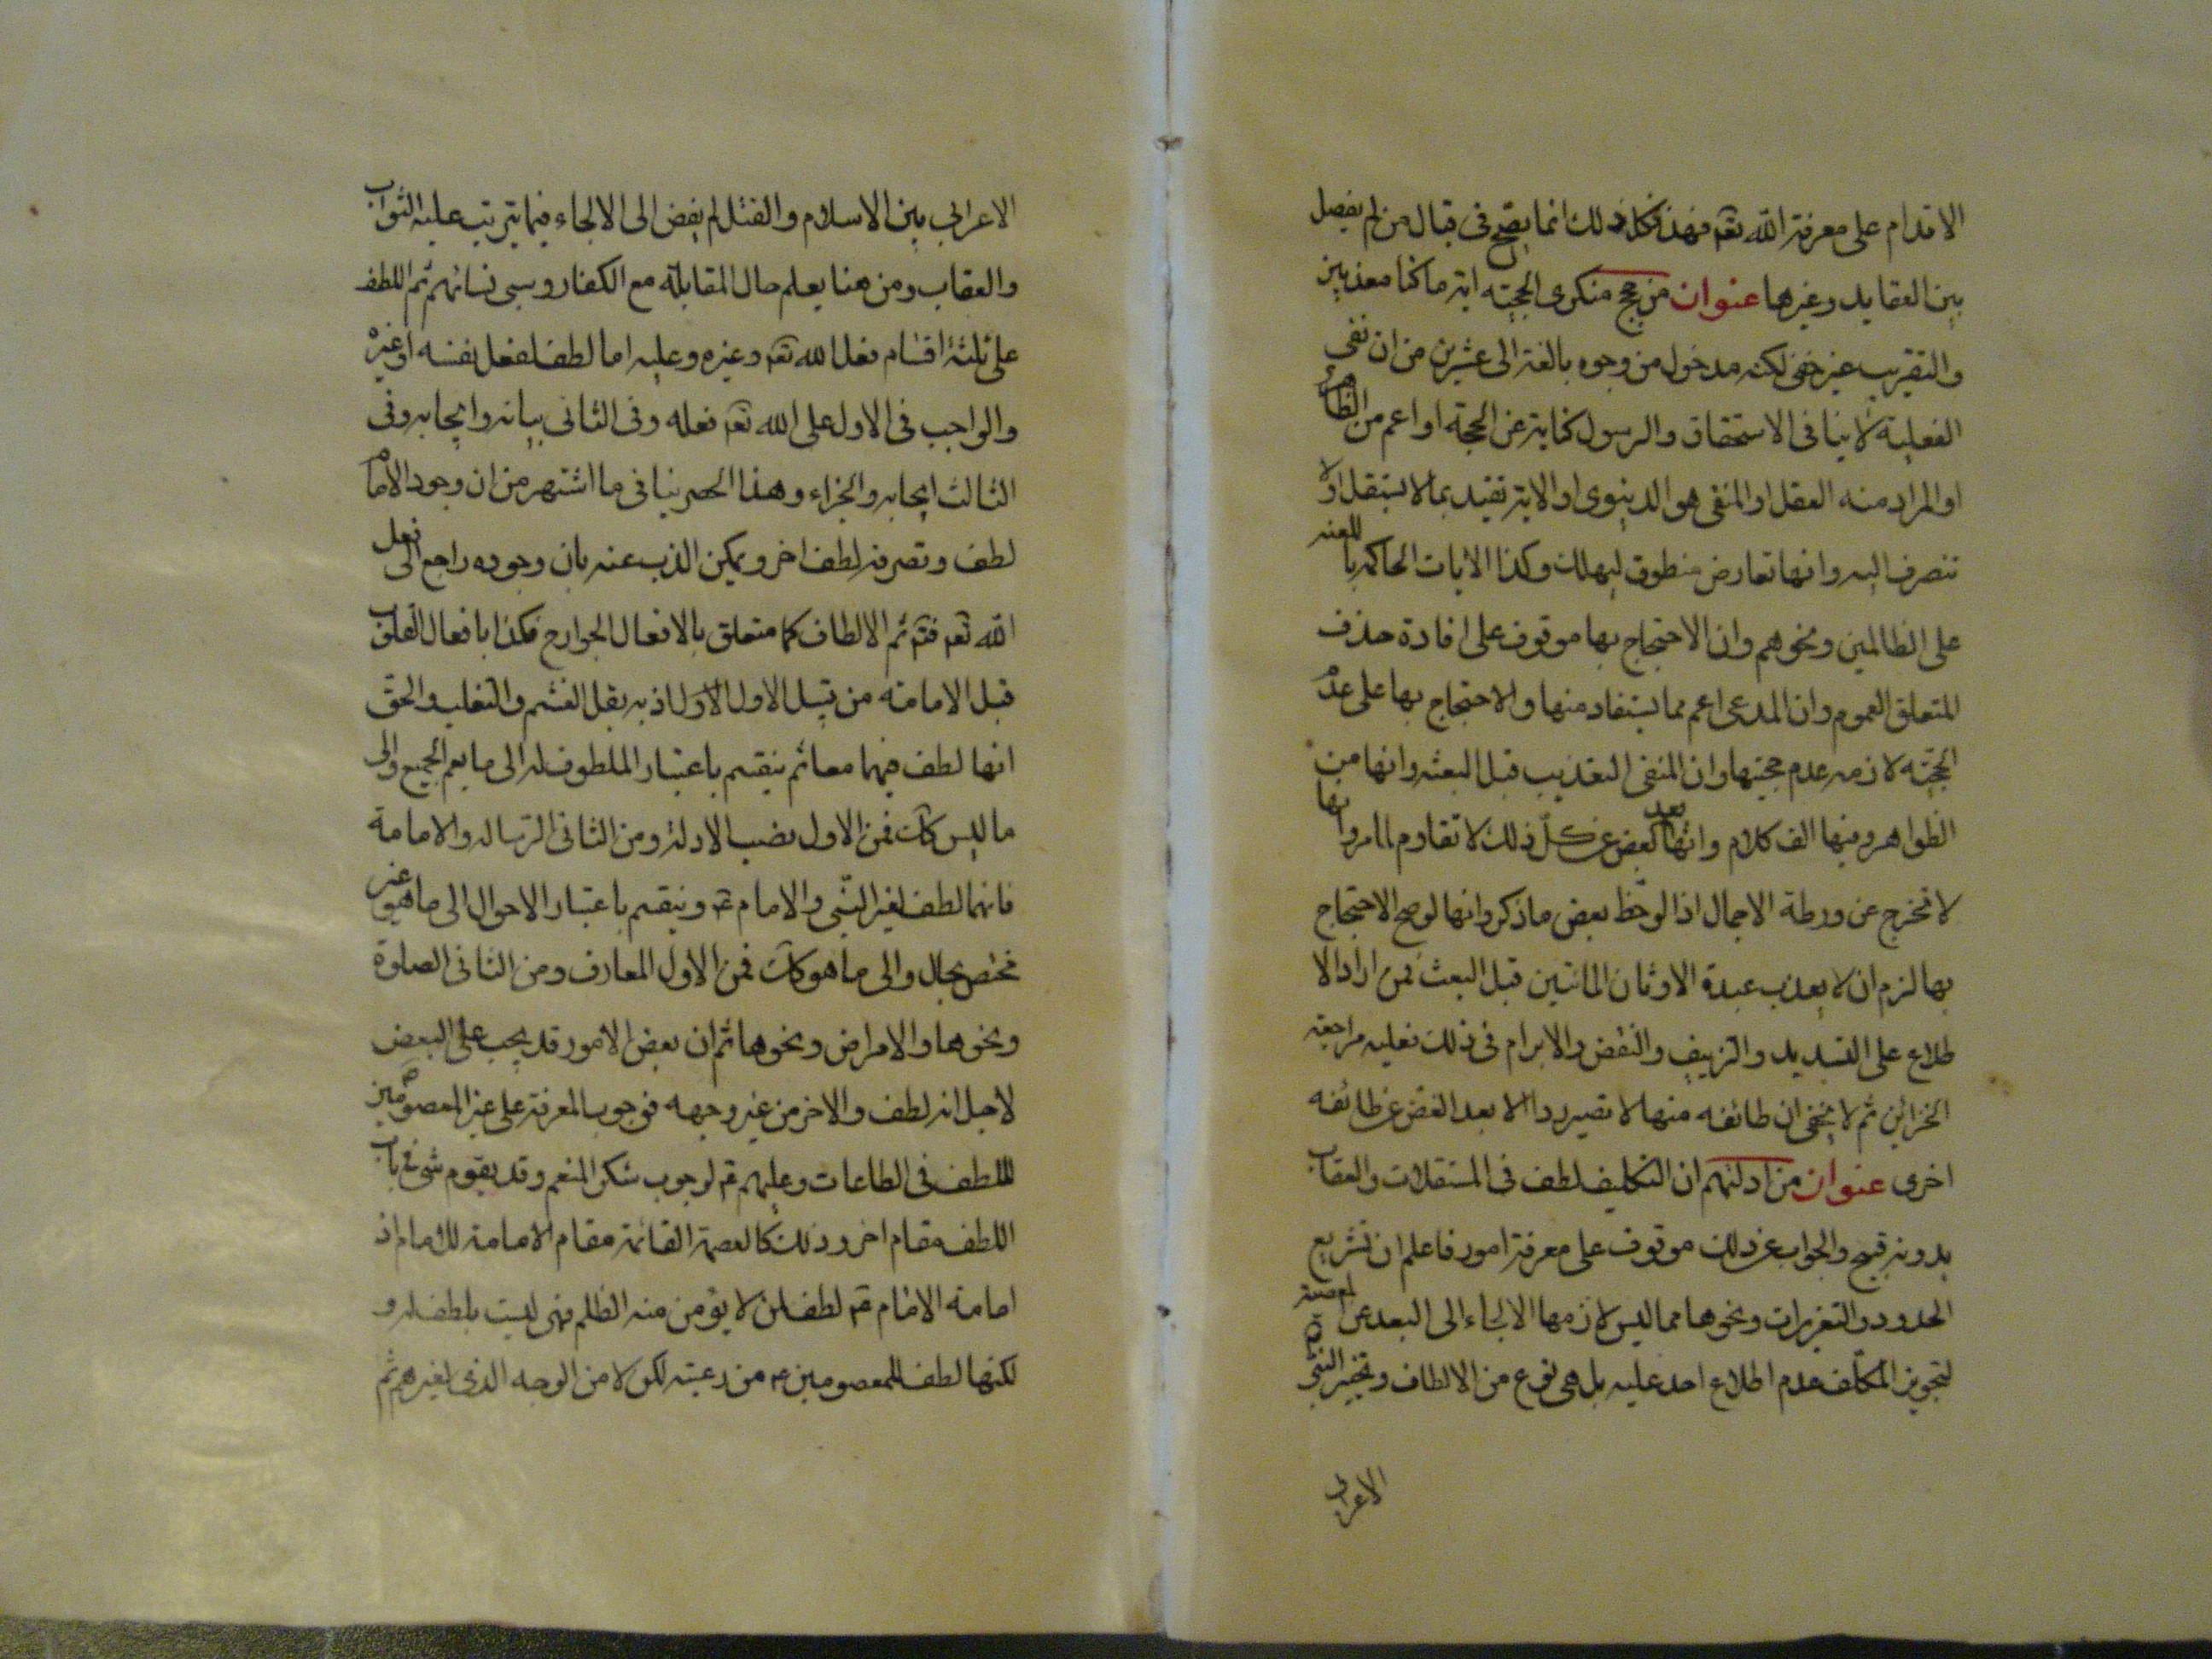 الاقدام على معرفة الله تعه فهذا فكل ذلك انما يصح فى قبال من لم يفصل
بين العقايد وغيرها عنوان من حجج منكرى الحجيته اية ما كنا معذبين
والتقريب غير خفى لكنه مدخول من وجوه بالغة الى عشرين من ان نفى
الفعلية لا ينافى الاستحقاق والرسول كناية عن الحجة او اعم من الظاهرى
او المراد منه العقل او المنفى هو الدينوى او الاية تقيد بما لا يستقل اولا
تنصرف اليه وانها تعارض منطوق ليهلك وكذا الايات الحاكمة باللعنه
على الظالمين ونحوهم وان الاحتجاج بها موقوف على افادة حذف
المتعلق العموم وان المدعى اعم مما يستفاد منها والاحتجاج بها على عدم
الحجيته لازمه عدم حجيتها وان المنفى التعذيب قبل البعثه وانها من
الظواهر وفيها الف كلام وانها بعد الغض عن كل ذلك لا تقاوم لما مر وانها
لا تخرج عن ورطة الاجمال اذا لوحظ بعض ما ذكر وانها لو صح الاحتجاج
بها لزم ان لا يعذب عبدة الاوثان المائتين قبل البعث فمن اراد الا
طلاع على التسديد والتزييف والنقض والابرام فى ذلك فعليه مراجعة
الخزائن ثم لا يخفى ان طائفه منها لا تصير ردا الا بعد الغض عن طائفه
اخرى عنوان من ادلتهم ان التكليف لطف فى المستقلات والعقاب
بدونه قبيح والجواب عن ذلك موقوف على معرفة امور فاعلم ان تشريع
الحدود والتعزيرات ونحوها مما ليس لازمها الالجاء الى البعد عن المعصية
لتجويز المكلف عدم اطلاع احد عليه بل هى نوع من الالطاف وتخيير النبى
الاعرابى
الاعرابى بين الاسلام والقتل لم يفض الى الالجاء فيما يترتب عليه الثواب
والعقاب ومن هنا يعلم حال المقابلة مع الكفار وسبى نسائهم ثم اللطف
على ثلثة اقسام فعل الله تعه وغيره وعليه اما لطف لفعل نفسه او غيره
والواجب فى الاول على الله تعه فعله وفى الثانى بيانه وايجابه وفى
الثالث ايجابه والجزاء وهذا الحصر ينافى ما اشتهر من ان وجود الامام
لطف وتصرفه لطف اخر ويمكن الذب عنه بان وجوده راجع الى فعل
الله تعه فتم ثم الالطاف كما متعلق بالافعال الجوارح فكذا بافعال القلوب
قبل الامامة من قبيل الاول اذ به يقل الغشم والتغليب والحق
انها لطف فيهما معا ثم ينقسم باعتبار الملطوف له الى ما يعم الجميع والى
ما ليس كك فمن الاول نصب الادلة ومن الثانى الرساله والامامة
فانهما لطف لغير النبى والامام عه وينقسم باعتبار الاحوال الى ما هو غير
مختص بحال والى ما هو كك فمن الاول المعارف ومن الثانى الصلوة
ونحوها والامراض ونحوها ثم ان بعض الامور قد يجب على البعض
لاجل انه لطف والاخر من غير وجهه فوجوب المعرفة على غير المعصومين
للطف فى الطاعات وعليهم عه لوجوب شكر المنعم وقد يقوم شئ فى باب
اللطف مقام اخر وذلك كالعصمة القائمة مقام الامامة للامام اذ
امامة الامام عه لطف لمن لا يؤمن منه الظلم فهى ليست بلطف له و
لكنها لطف للمعصومين عه من رعيته لكن لا من الوجه الذى لغيرهم ثم